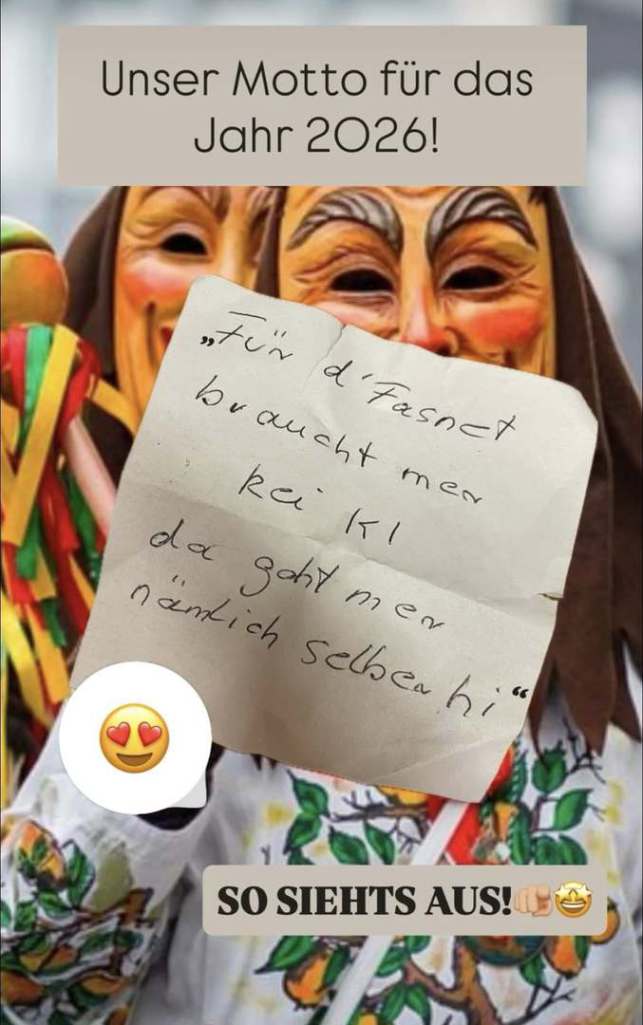 Unser Motto für das
Jahr 2026!
„Für d'Fasnet
braucht mer
kei KI
da goht mer
nämlich selber hi“
SO SIEHTS AUS!🫵🏼🤩